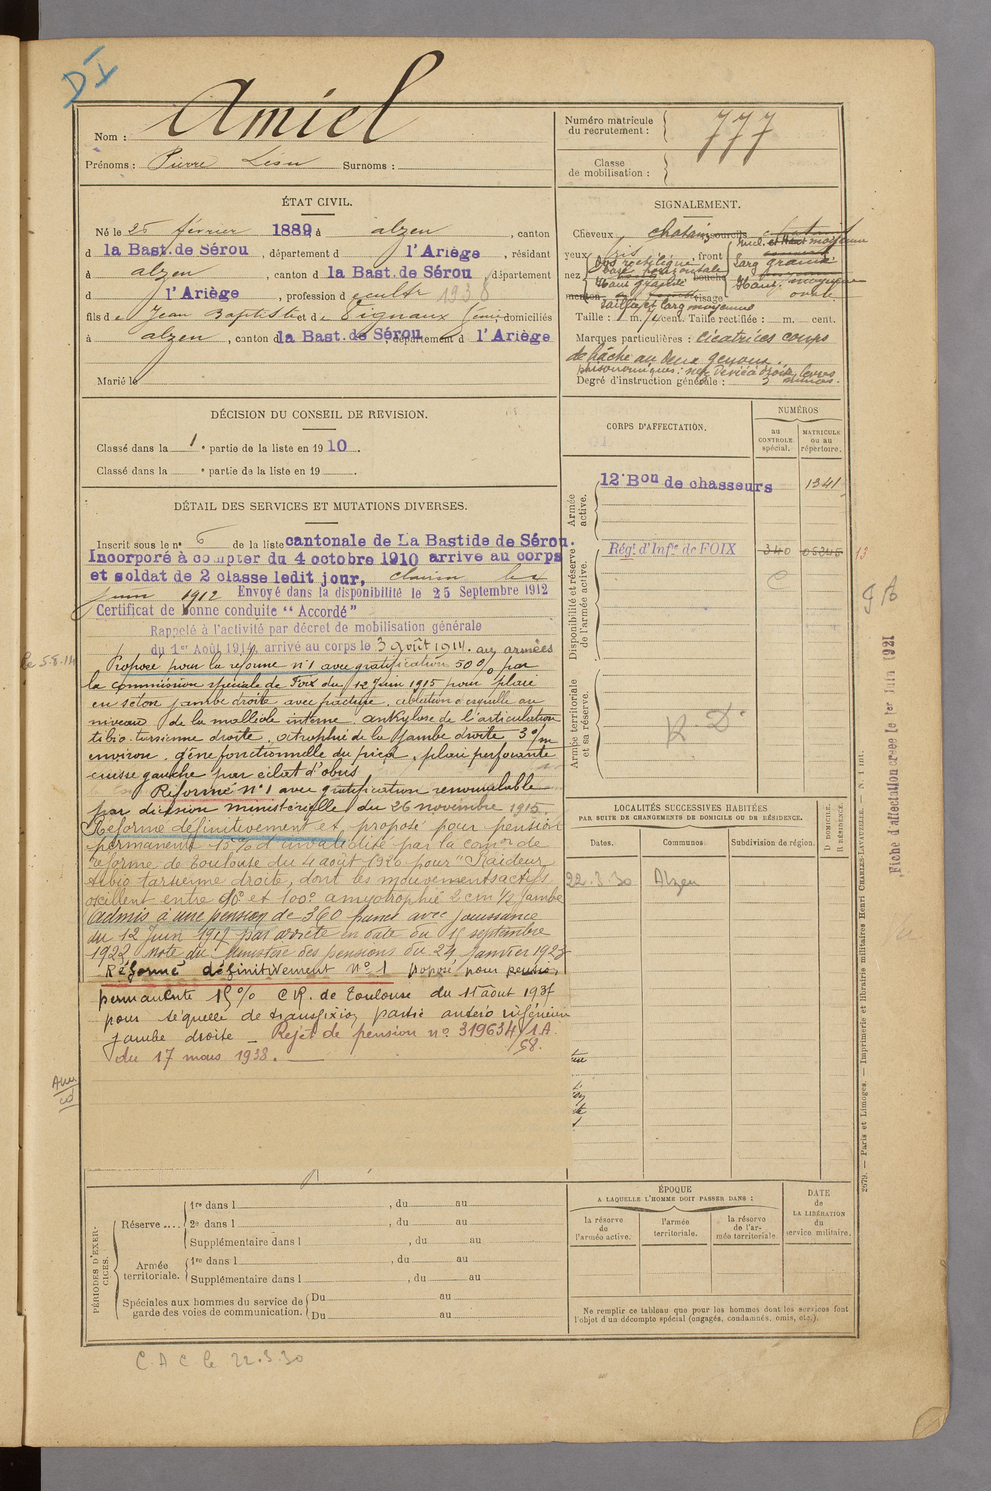 DI
Nom : Amiel
Prénoms : Pierre Léon Surnoms :
Numéro matricule
du recrutement : 777
Classe
de mobilisation :
ÉTAT CIVIL.
Né le 25 février 1889, à alzen, canton
d la Bast. de Sérou, département d l'Ariège, résidant
à alzen, canton d la Bast. de Sérou, département
d l'Ariège, profession d cultr 1938
fils d e Jean Baptiste et d e Pignaux, domiciliés
à alzen, canton d la Bast. de Sérou, département d l'Ariège
Marié le
SIGNALEMENT.
Cheveux chatain, sourcils
yeux gris, front
nez Dos rectiligne Base horizontale Haut bouche
menton visage ovale
Taille : 1 m. cent. Taille rectifiée : m. cent.
Marques particulières : cicatrices coups
de hâche au deux genoux.
Degré d'instruction générale : 3
DÉCISION DU CONSEIL DE REVISION.
Classé dans la 1e partie de la liste en 1910.
Classé dans la e partie de la liste en 19
DÉTAIL DES SERVICES ET MUTATIONS DIVERSES.
Inscrit sous le n° 6 de la liste cantonale de La Bastide de Sérou.
Incorporé à compter du 4 octobre 1910 arrive au corps
et soldat de 2 classe ledit jour, clairon le
juin 1912 Envoyé dans la disponibilité le 25 Septembre 1912
Certificat de bonne conduite "Accordé"
Rappelé à l'activité par décret de mobilisation générale
du 1er Août 1914, arrivé au corps le 3 août 1914. aux armées
le 5.8.14
Proposé pour la réforme n°1 avec gratification 50 % par
la commission spéciale de Foix du 12 Juin 1915 pour plaie
en seton jambe droite avec fracture, ablation d'esquille au
niveau de la malléole interne, ankylose de l'articulation
tibio-tarsienne droite, atrophie de la jambe droite 3 c/m
environ, gêne fonctionnelle du pied, plaie perforante
cuisse gauche par éclat d'obus
Réformé N°1 avec gratification renouvelable
par décision ministérielle du 26 novembre 1915.
Réformé définitivement et proposé pour pension
permanente 15 % d'invalidité par la comon de
réforme de Toulouse du 4 août 1920 pour "Raideur
tibio tarsienne droite, dont les mouvements actifs
oscillent entre 90° et 100° amyotrophie 2 cm 1/2 jambe
admis à une pension de 360 francs avec jouissance
du 12 Juin 1917 par arrêté en date du 15 septembre
1922 note du Ministre des pensions du 24 janvier 1923
Réformé définitivement N°1 proposé pour pension
permanente 15 % CR. de Toulouse du 11 août 1937
pour séquelle de transfixion partie antéro inférieure
jambe droite - Rejet de pension n° 319634/1A.
/58.
du 17 mars 1938.
CORPS D'AFFECTATION.
NUMÉROS
au
CONTROLE
spécial.
MATRICULE
ou au
répertoire.
Armée
active.
12e Bon de chasseurs 1341
Disponibilité et réserve
de l'armée active.
Régt. d'Infie de FOIX 340 05345 13
C
Armée territoriale
et sa réserve.
R. D.
LOCALITÉS SUCCESSIVES HABITÉES
PAR SUITE DE CHANGEMENTS DE DOMICILE OU DE RÉSIDENCE.
Dates. Communes. Subdivision de région. D. DOMICILE. R. RÉSIDENCE.
22.3.30 Alzen
PÉRIODES D'EXERCICES.
Réserve .... 1re dans l , du au
2e dans l , du au
Supplémentaire dans l , du au
Armée
territoriale. 1re dans l , du au
Supplémentaire dans l , du au
Spéciales aux hommes du service de
garde des voies de communication. Du au
Du au
ÉPOQUE
A LAQUELLE L'HOMME DOIT PASSER DANS :
la réserve
de
l'armée active.
l'armée
territoriale.
la réserve
de l'armée territoriale.
DATE
de
LA LIBÉRATION
du
service militaire.
Ne remplir ce tableau que pour les hommes dont les services font
l'objet d'un décompte spécial (engagés, condamnés, omis, etc.).
C.A C le 22.3.30
Fiche d'affectation créée le 1er Juin 1921
2679. — Paris et Limoges. — Imprimerie et librairie militaires Henri CHARLES-LAVAUZELLE. — N. 1 int.